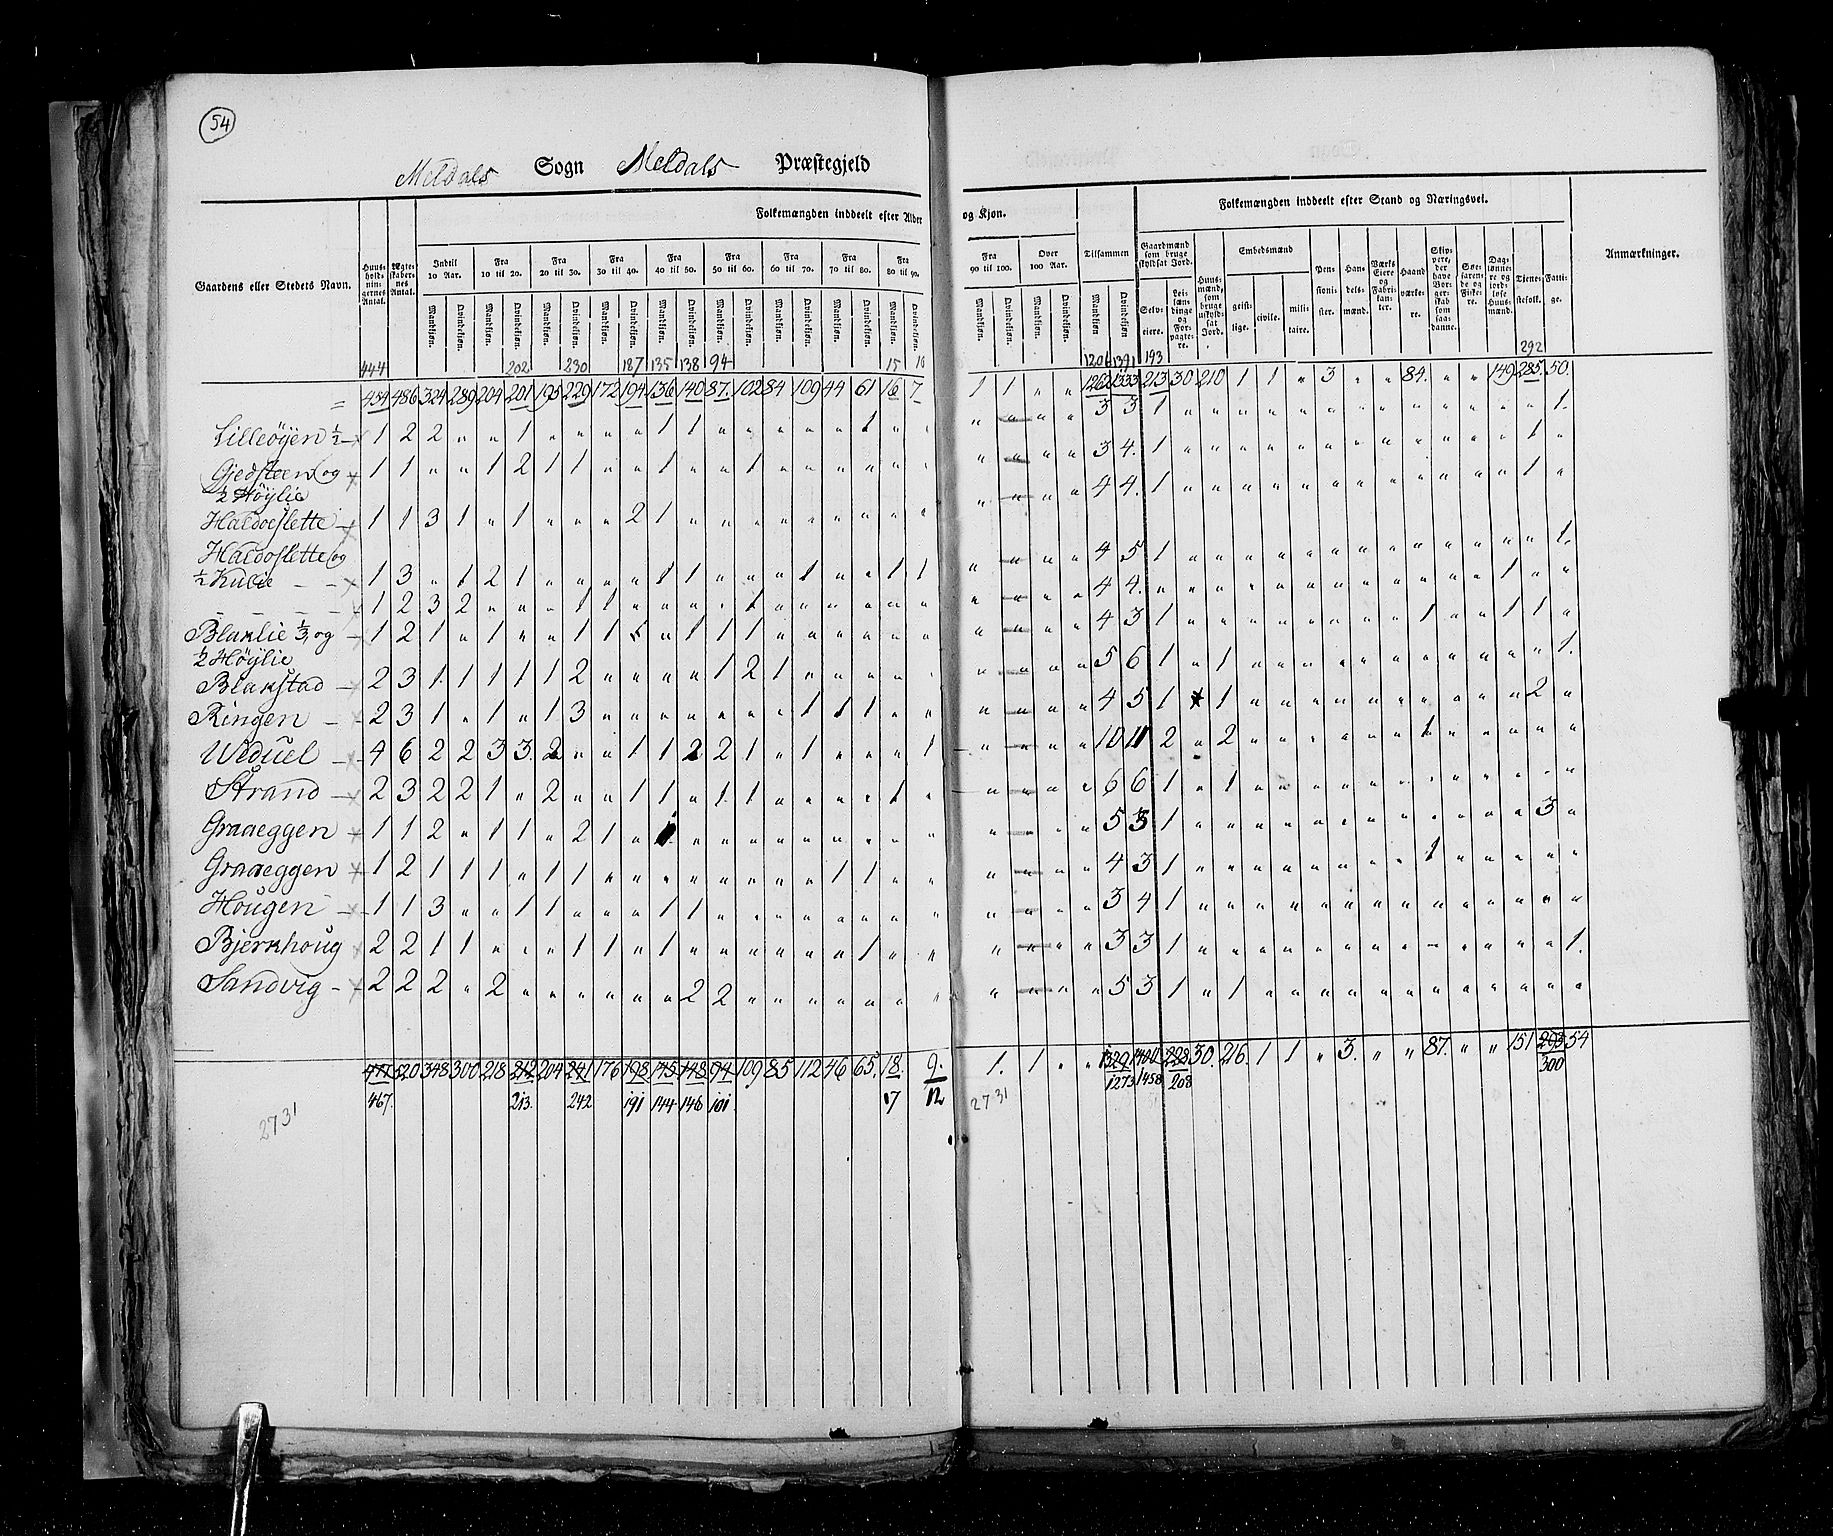 54
Meldals Sogn Meldals Præstegjeld
Folkemængden inddeelt efter Alder og Kjøn.
Folkemængden inddeelt efter Stand og Næringsvei.
Gaardens eller Stedets Navn.
Huusholdningernes Antal.
Ægteskabernes Antal.
Indtil 10 Aar.
Fra 10 til 20.
Fra 20 til 30.
Fra 30 til 40.
Fra 40 til 50.
Fra 50 til 60.
Fra 60 til 70.
Fra 70 til 80.
Fra 80 til 90.
Fra 90 til 100.
Over 100 Aar.
Tilsammen
Gaardmænd som bruge skyldsat Jord.
Huusmænd, som bruge uskyldsat Jord.
Embedsmænd
Pensionister.
Handelsmænd.
Værks Eiere og Fabrikanter.
Haandværkere.
Skippere, der have Borgerskab som saadanne.
Søefarende og Fiskere.
Daglønnere og jordløse Huusmænd.
Tjenestefolk.
Fattige.
Anmærkninger.
Mandkjøn. Qvindekjøn.
Selveiere.
Leilændinge og Forpagtere.
geistlige.
civile.
militaire.
444 202 230 187 135 138 94 15 10 1201 1391 193 292
454 486 324 289 204 201 195 229 172 194 136 140 87. 102 84 109 44 61 16 7 1 1 " " 1262 1333 213 30 210 1 1 " 3 " " 84. " " 149 285. 50.
Lilleøyen 1/2 1 2 2 " " 1 " " " " 1 1 " " " " " 1 " " " " " " 3 3 1 " " " " " " " " " " " " " 1.
Gjedsteen og 1 1 " " 1 2 1 1 " " 1 " " 1 " " " " " " " " " " 3 4. 1 " " " " " " " " " " " " 1 "
1/2 Høylie
Haldoeslette 1 1 3 1 " 1 " " " 2 1 " " " " " " " " " " " " " 4 4. 1 " " " " " " " " " " " " 1 "
Haldoslette og
1/2 Kulie 1 3 " 1 2 1 " " " " 1 1 " " " 1 " " 1 1 " " " " 4 5 1 " " " " " " " " " " " " " 1.
1 2 3 2 " " " 1 1 " " " " 1 " " " " " " " " " " 4 4. " " " " " " " " " " " " 1 " "
Blaklie 1/3, og 1 2 1 " 1 " " 1 1 " " 1 1 1 " " " " " " " " " " 4 3 1 " " " " " " " " 1 " " 1 1 "
1/2 Høylie
Blakstad 2 3 1 1 1 1 1 2 " " " " 1 2 1 " " " " " " " " " 5 6 1 " 1 " " " " " " " " " " " 1.
Ringen 2 3 1 " 1 " 1 3 " " " " " " " 1 1 1 " " " " " " 4 5 1 1 " " " " " " " " " " 2 "
Weduel 4 6 2 2 3 3. 2 " " 1 1 2 2 1 " 1 " " " 1 " " " " 10 11 2 " 2 " " " " " " 1 " " " " "
Strand 2 3 2 2 1 " 2 " " 1 1 " 1 1 " " " " 1 " " " " " 6 6 1 " 1 " " " " " " " " " " " "
Graaeggen 1 1 2 " 1 1 " 2 1 " 1 " " " " " " " " " " " " " 5 3 1 " " " " " " " " " " " " 3 "
Graaeggen 1 2 1 1 1 " 1 1 " " " " " " " " 1 1 " " " " " " 4 3 1 " " " " " " " " 1 " " " " "
Hougen 1 1 3 " " 1 1 " " " 1 1 " " " " " " " " " " " " 3 4 1 " " " " " " " " " " " " " "
Bjerkhoug 2 2 1 1 " " " 1 1 " 1 " " " " " " 1 " " " " " " 3 3 1 " " " " " " " " " " " " " 1.
Sandvig 2 2 2 " 2 " " " " " " 2 2 " " " " " " " " " " " 5 3 1 " 1 " " " " " " " " " " " "
477 520 348 300 218 212 204 241 176 198 145 148 94. 109 85 112 46 65. 18. 9. 1. 1 " " 1329 1400 228 30. 216. 1 1 " 3. " " 87. " " 151 293 54
467. 213. 242 191 144 146 101. 17 12 1273 1458 208 300
2731 2731